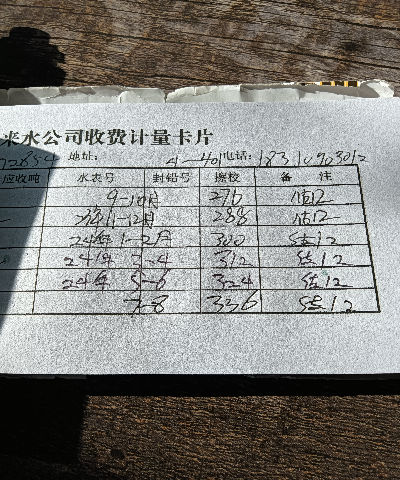 来水公司收费计量卡片
72854 地址: 4-401 电话: 18310903012
应收吨 水表号 封铅号 擦校 备 注
9-10月 276 估12
11-12月 288 估12
24年 1-2月 300 估12
24年 3-4 312 估12
24年 5-6 324 估12
7-8 336 估12